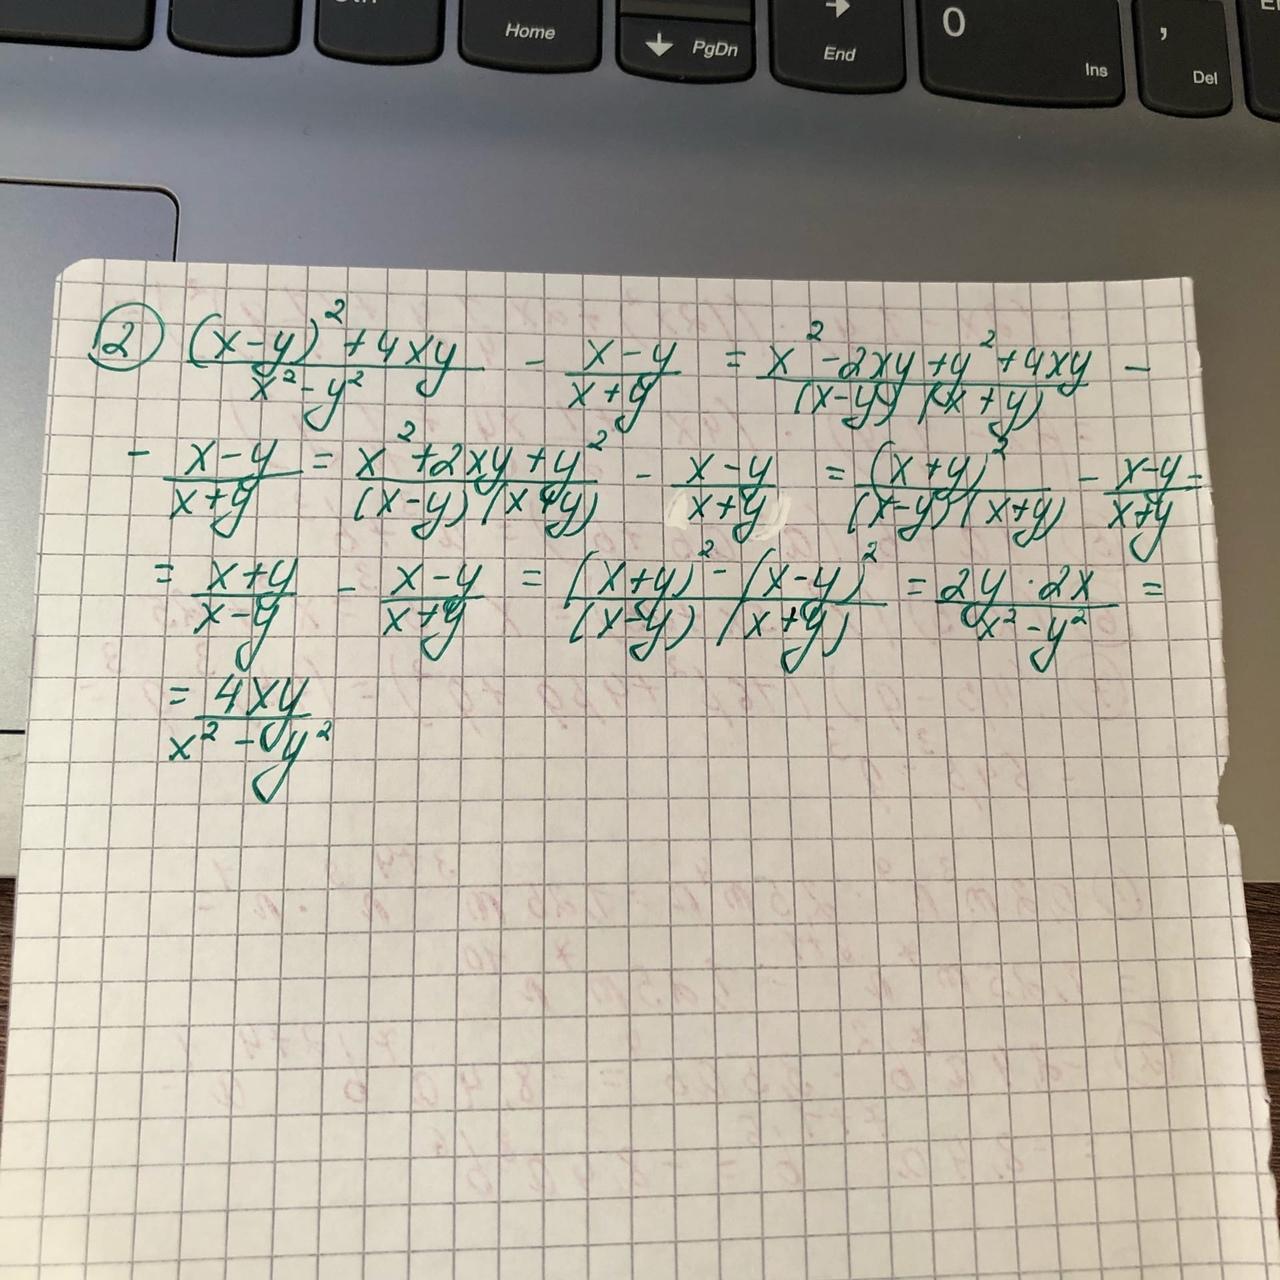 Home
PgDn
End
0
Ins
,
Del
2 (x-y)²+4xy / x²-y² - x-y / x+y = x²-2xy+y²+4xy / (x-y)(x+y) -
- x-y / x+y = x²+2xy+y² / (x-y)(x+y) - x-y / (x+y) = (x+y)² / (x-y)(x+y) - x-y / x+y =
= x+y / x-y - x-y / x+y = (x+y)²-(x-y)² / (x-y)(x+y) = 2y·2x / x²-y² =
= 4xy / x²-y²